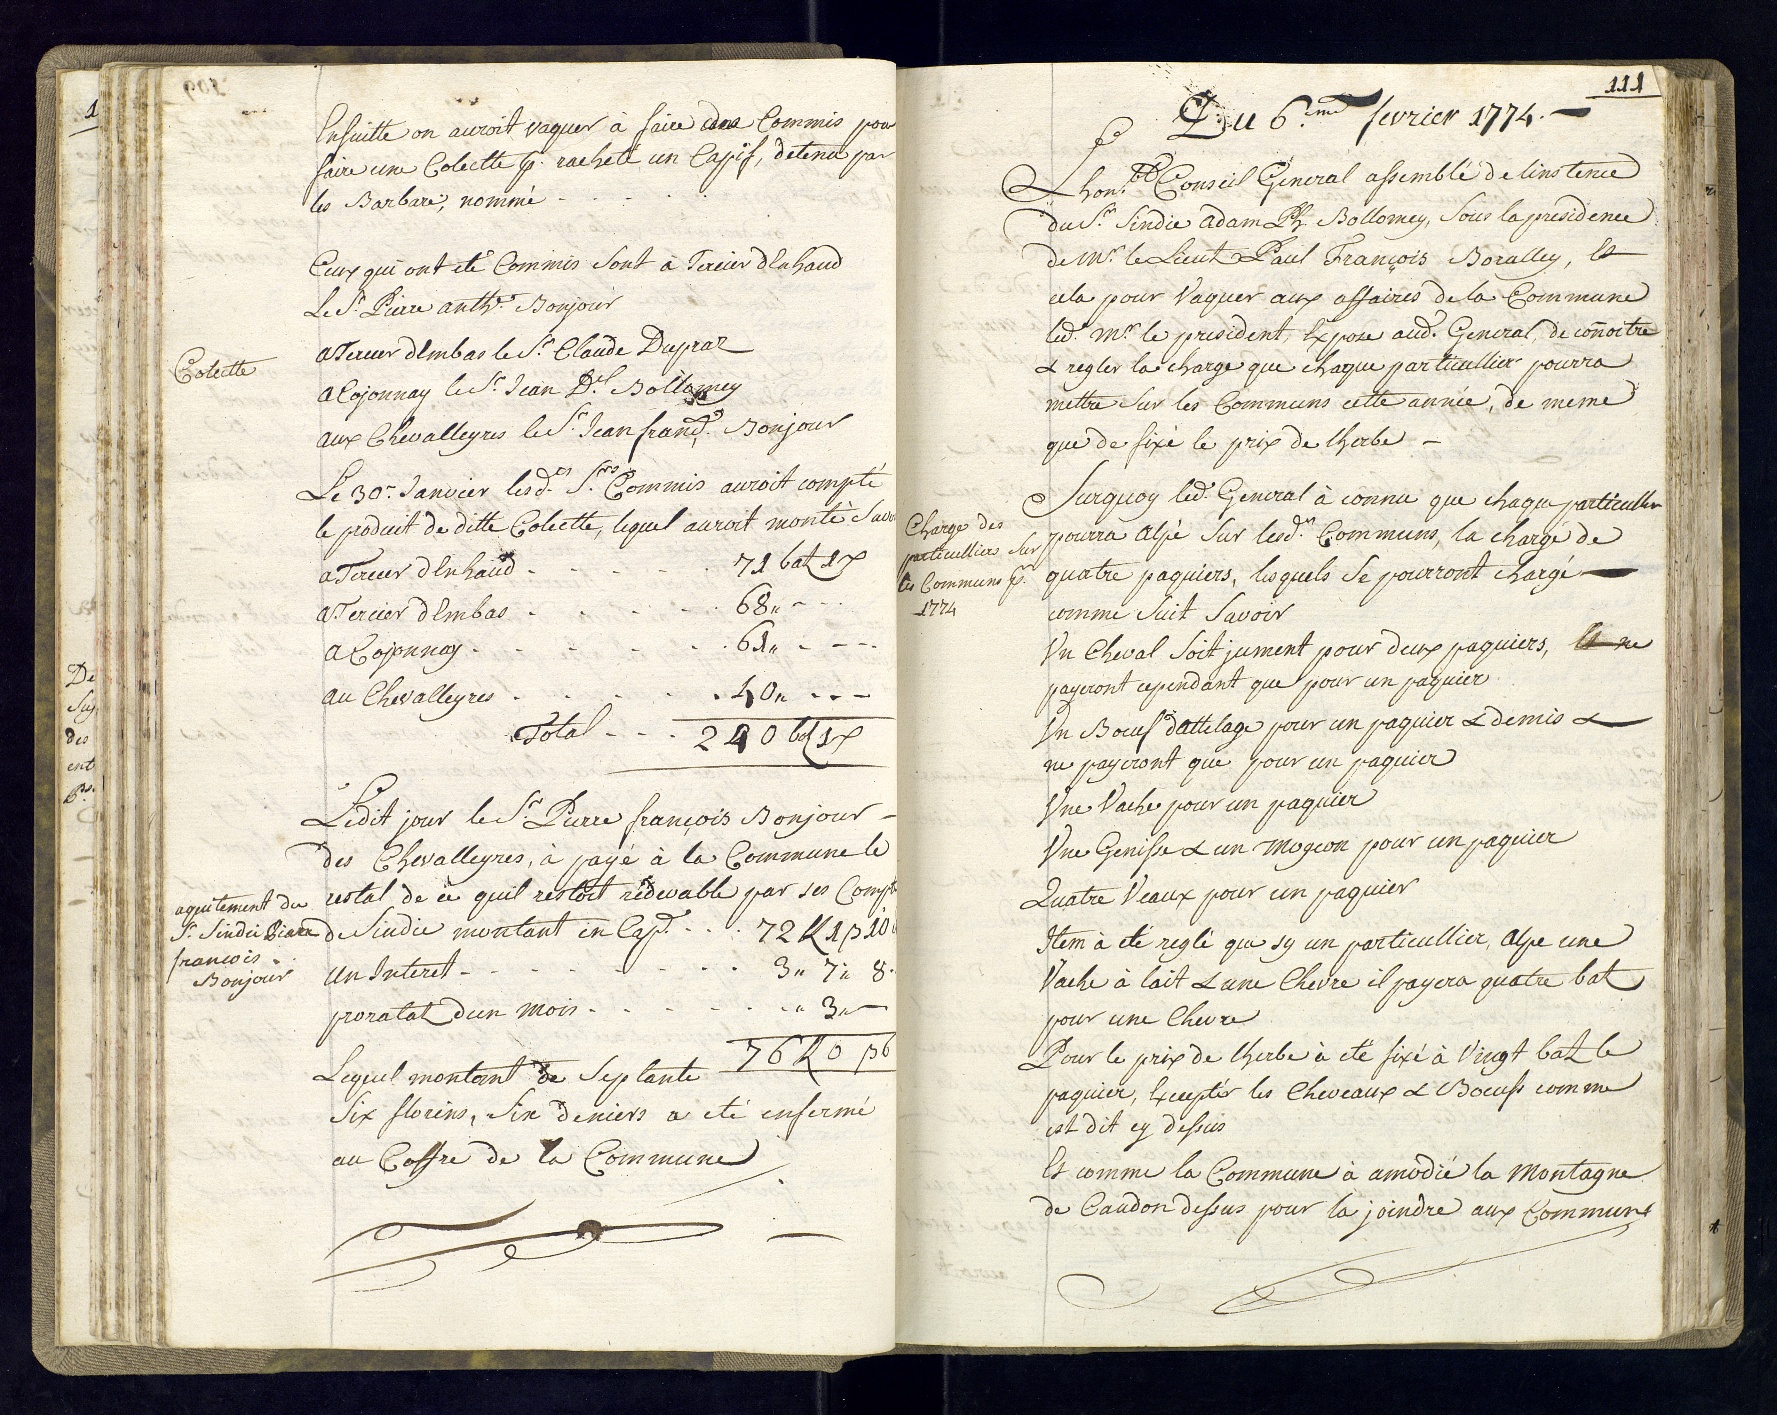 Ensuitte on auroit vaquer à faire des Commis pour
faire une Colectte p.r racheté un Capif, detenu par
les Barbare, nommé - - - - -
Ceux qui ont eté Commis sont à Tercier dEnhaud
Le S.r Pierre anth.e Bonjour
a Tercier dEmbas le S.r Claude Dupraz
Colectte
a Cojonnay le S.r Jean D.el Bollomey
aux Chevalleyres le S.r Jean franç.s Bonjour
Le 30.e Janvier lesd.es S.rs Commis auroit compté
le produit de ditte Colectte, lequel auroit monté Savo
a Tercier dEnhaud - - - - - 71 batz 1x
a Tercier dEmbas - - - - - 68 „ - - -
a Cojonnay - - - - - - 61 „ - - - -
au Chevalleyres - - - - - 40 „ - - -
Total - - - 240 btz 1x
Ledit jour le S.r Pierre françois Bonjour -
des Chevalleyres, à payé à la Commune le
restal de ce quil restoit redevable par ses Compte
aquitement du
S.r Sindic Pierre
françois
Bonjour
de Sindic montant en Cap.l - - - 72 fl 1 ß 10
Un Interet - - - - - - - - 3 „ 7 „ 8
proratat d'un mois - - - - - - „ 3 „ -
76 fl 0 ß 6
Lequel montant de Septante
Six florins, Six deniers a eté enfermé
au Coffre de la Commune
111
Du 6.me fevrier 1774. -
Lhon.ble Conseil General assemblé de linstence
du S.r Sindic Adam Ph. Bollomey, Sous la presidence
de Mr. le Lieut Paul François Boralley, Et
cela pour Vaquer aux affaires de la Commune
led. Mr. le president, Expose aud. General, de conoitre
& regler la charge que chaque particullier pourra
mettre sur les Communs cette année, de meme
que de fixé le prix de lherbe -
Charge des
particullier sur
les Communs p.r
1774
Surquoy led. General à connu que chaque particullier
pourra Alpé Sur lesd.s Communs, la charge de
quatre paquiers, lesquels Se pourront chargé -
comme Suit Savoir
Un Cheval Soit jument pour deux paquiers, Et ne
payeront cependant que pour un paquier
Un Boeuf dattelage pour un paquier & demis &
ne payeront que pour un paquier
Une Vache pour un paquier
Une Genisse & un Mogeon pour un paquier
Quatre Veaux pour un paquier
Item à eté reglé que sy un particullier, Alpe une
Vache à lait & une Chevre il payera quatre batz
pour une Chevre
Pour le prix de lherbe à eté fixé à Vingt batz le
paquier, Exceptér les Cheveaux & Boeufs comme
est dit cy dessus
Et comme la Commune à amodié la Montagne
de Caudon dessus pour la joindre aux Communs